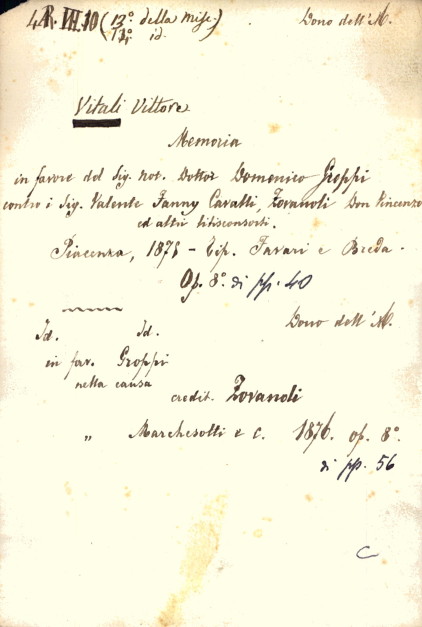 4R. VII. 10 (12º della Misc.) Dono dell'A.
(13º id.
Vitali Vittore
Memoria
in favore del Sig. not. Dottor Domenico Groppi
contro i Sig. Valente Fanny Cavalli, Zovanoli Don Vincenzo
ed altri litisconsorti.
Piacenza, 1875 - Tip. Favari e Breda.
Op. 8º di pp. 40
Id. Id. Dono dell'A.
in fav. Groppi
nella causa
credit. Zovanoli
„ Marchesotti e C. 1876. op. 8º.
di pp. 56
C